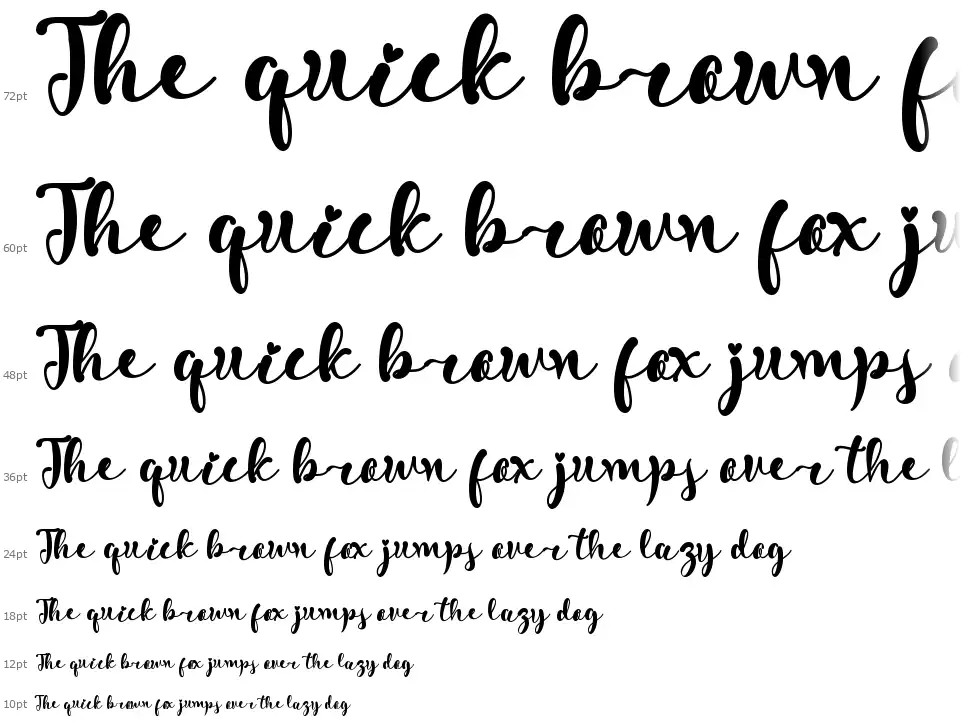 72pt The quick brown f
60pt The quick brown fox ju
48pt The quick brown fox jumps
36pt The quick brown fox jumps over the l
24pt The quick brown fox jumps over the lazy dog
18pt The quick brown fox jumps over the lazy dog
12pt The quick brown fox jumps over the lazy dog
10pt The quick brown fox jumps over the lazy dog